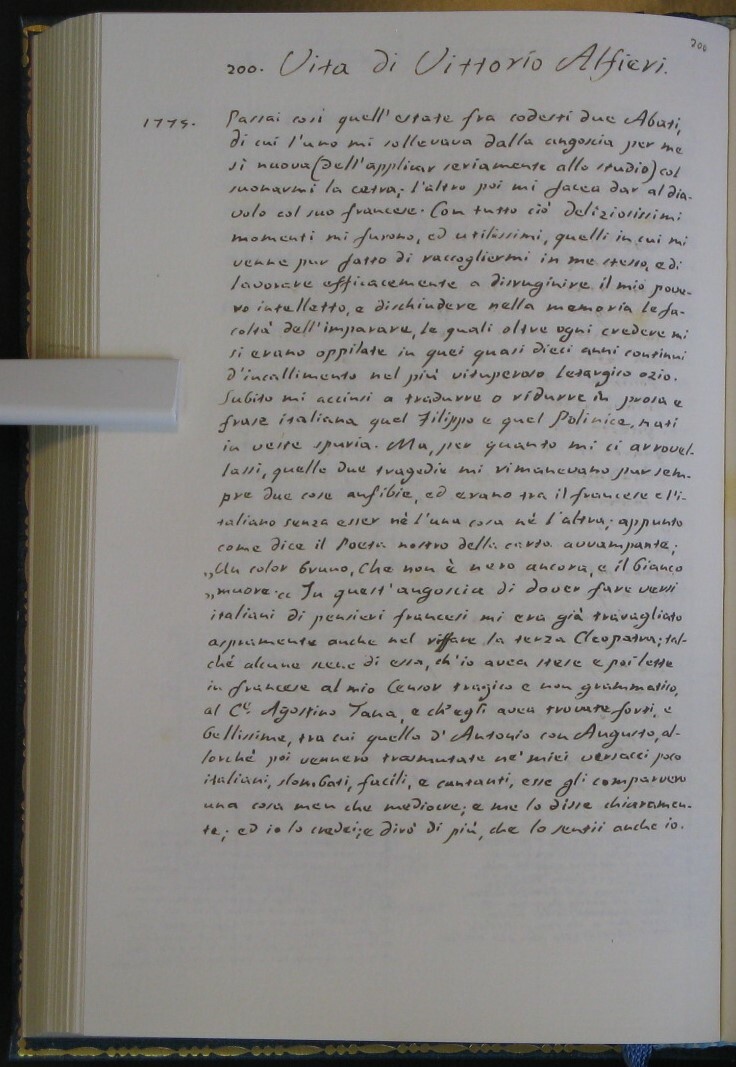 200
200. Vita di Vittorio Alfieri.
1775. Passai così quell'estate fra codesti due Abati,
di cui l'uno mi sollevava dalla angoscia per me
sì nuova (dell'applicar seriamente allo studio) col
suonarmi la cetra; l'altro poi mi facea dar al dia-
volo col suo francese. Con tutto ciò deliziosissimi
momenti mi furono, ed utilissimi, quelli in cui mi
venne pur fatto di raccogliermi in me stesso, e di
lavorare efficacemente a disruginire il mio pove-
ro intelletto, e dischiudere nella memoria le fa-
coltà dell'imparare, le quali oltre ogni credere mi
si erano oppilate in quei quasi dieci anni continui
d'incallimento nel più vituperoso letargico ozio.
Subito mi accinsi a tradurre o ridurre in prosa e
frase italiana quel Filippo e quel Polinice, nati
in veste spuria. Ma, per quanto mi ci arrovel-
lassi, quelle due tragedie mi rimanevano pur sem-
pre due cose anfibie, ed erano tra il francese e l'i-
taliano senza esser nè l'una cosa nè l'altra; appunto
come dice il Poeta nostro della carta avvampante;
„Un color bruno, Che non è nero ancora, e il bianco
„muore.„ In quest'angoscia di dover fare versi
italiani di pensieri francesi mi era già travagliato
aspramente anche nel riffare la terza Cleopatra; tal-
chè alcune scene di essa, ch'io avea stese e poi lette
in francese al mio Censor tragico e non grammatico,
al C.te Agostino Tana, e ch'egli avea trovate forti, e
bellissime, tra cui quella d'Antonio con Augusto, al-
lorchè poi vennero trasmutate ne' miei versacci poco
italiani, slombati, facili, e cantanti, esse gli comparvero
una cosa men che mediocre; e me lo disse chiaramen-
te; ed io lo credei; e dirò di più, che lo sentii anche io.